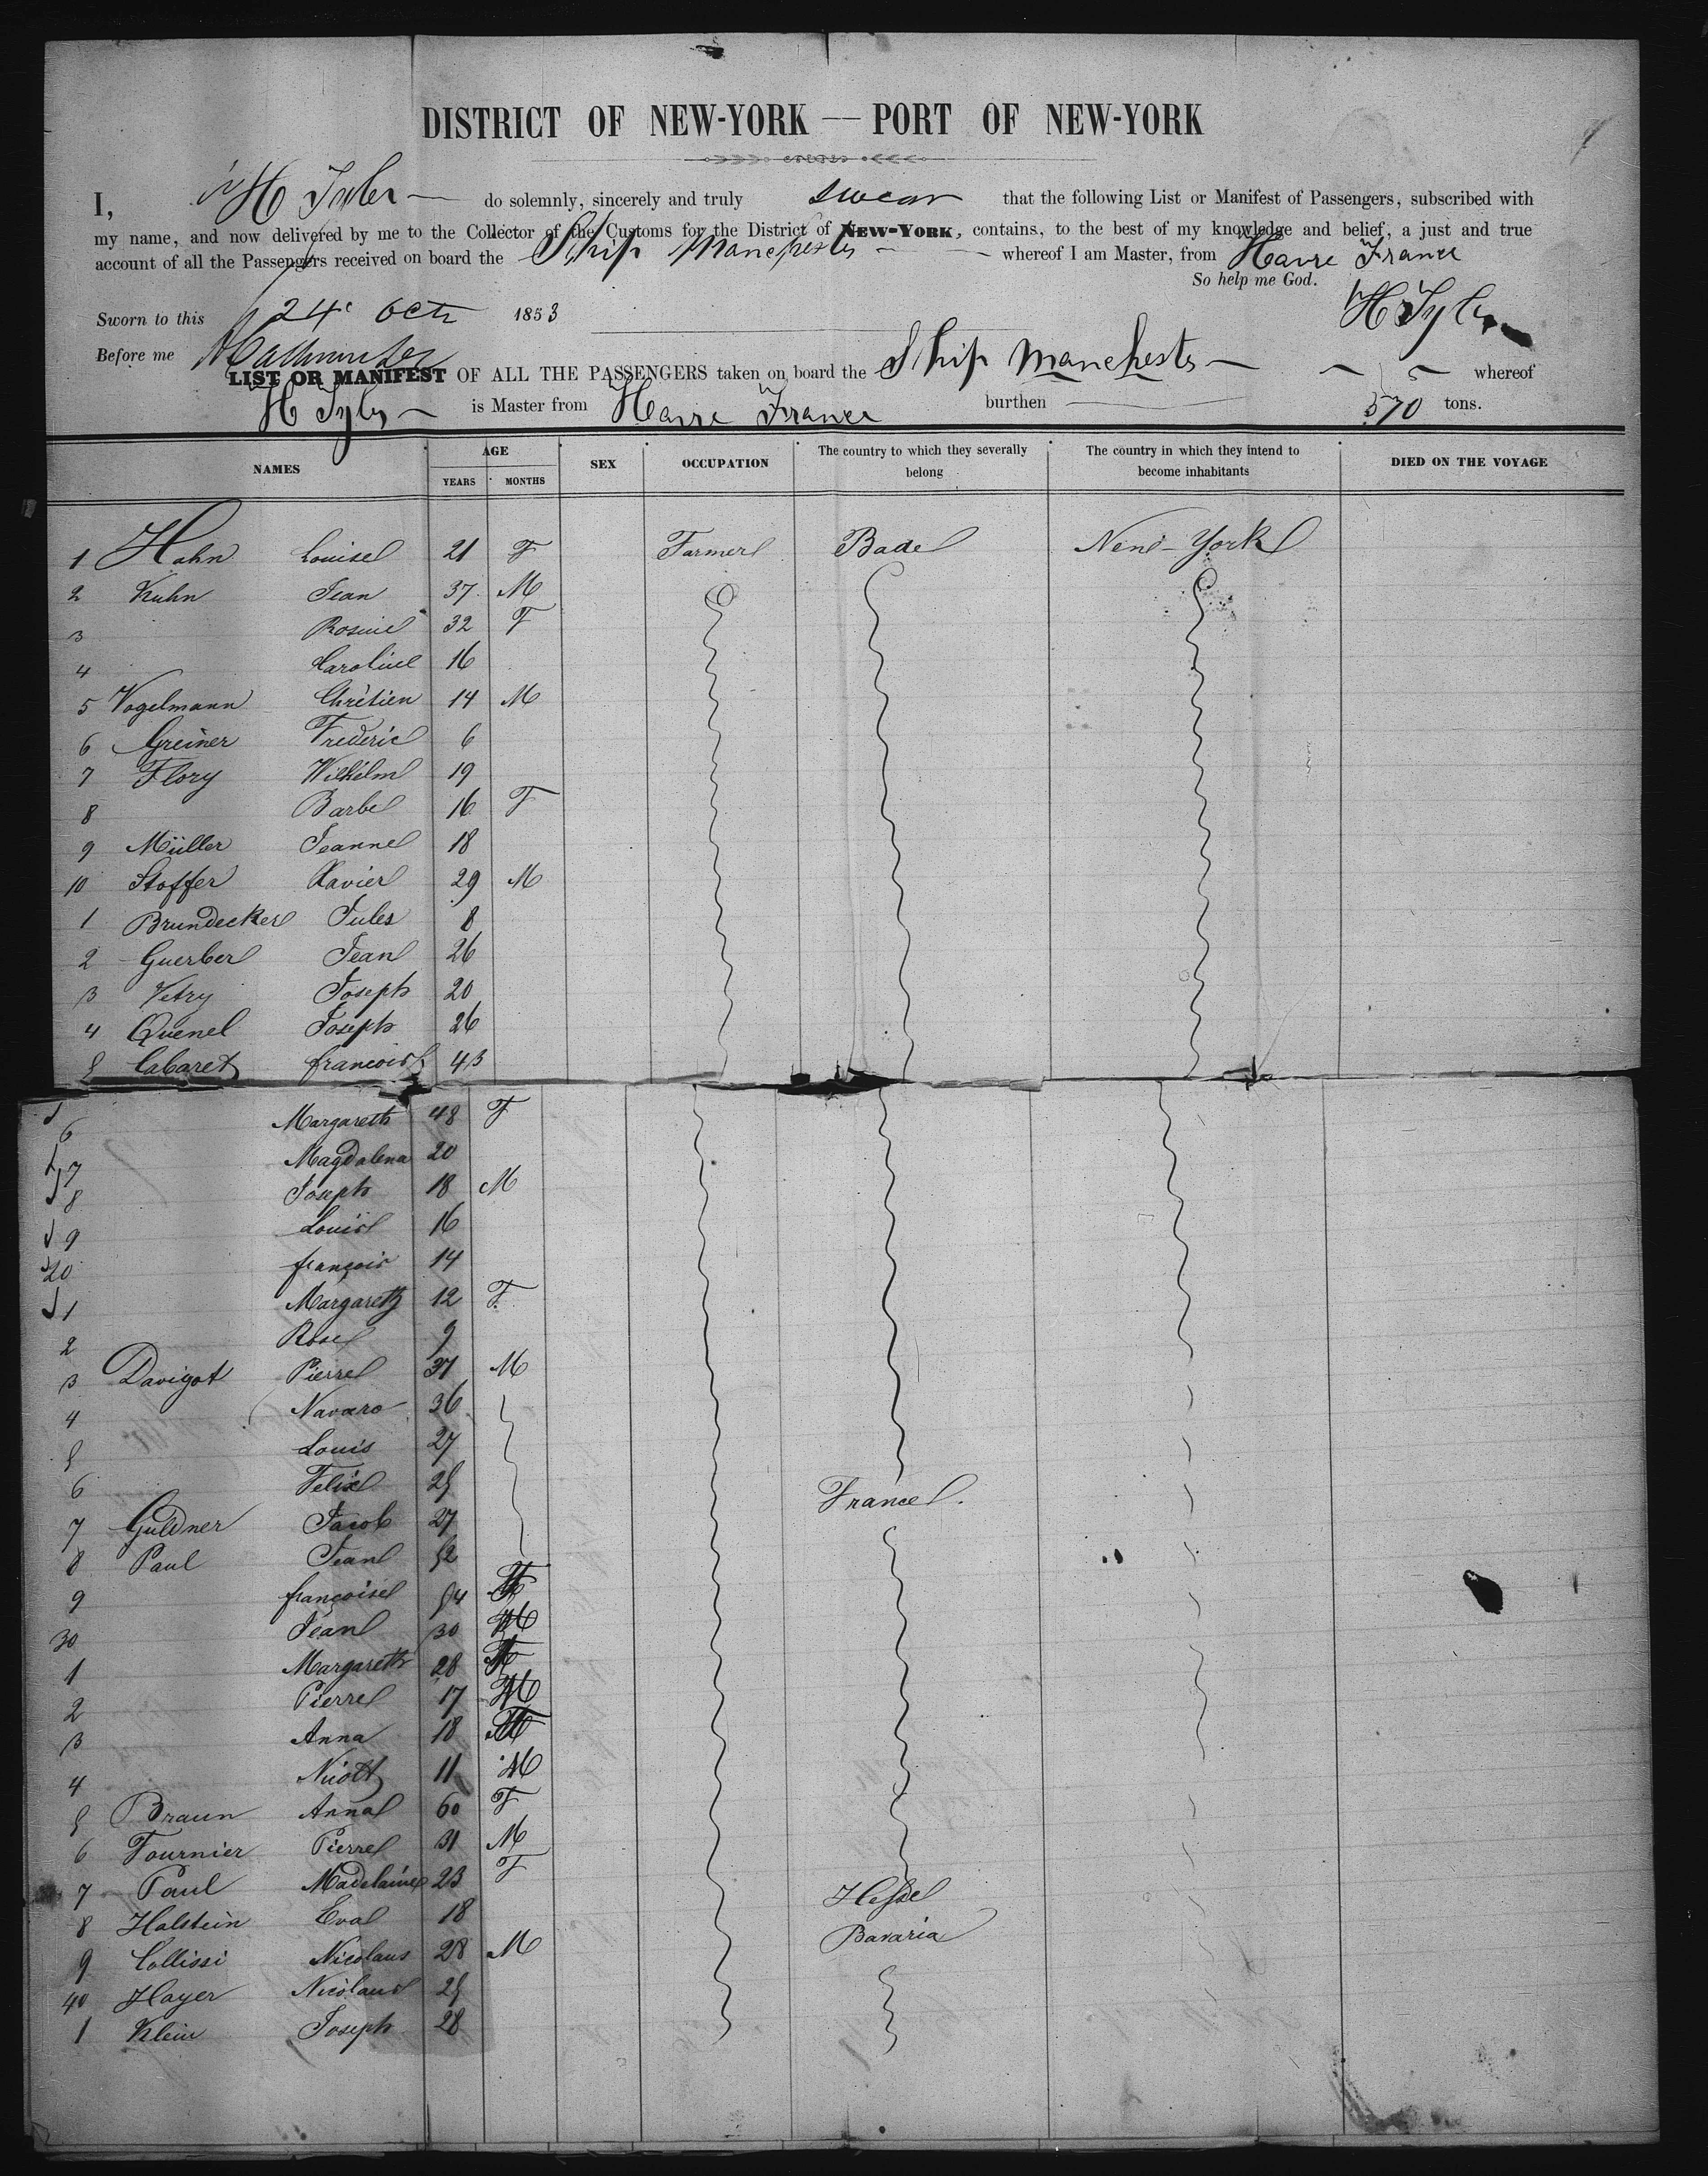 DISTRICT OF NEW-YORK — PORT OF NEW-YORK
I, H Tyler do solemnly, sincerely and truly swear that the following List or Manifest of Passengers, subscribed with
my name, and now delivered by me to the Collector of the Customs for the District of NEW-YORK, contains, to the best of my knowledge and belief, a just and true
account of all the Passengers received on board the Ship Manchester whereof I am Master, from Havre France
So help me God.
Sworn to this 24 Octr 1853 H Tyler
Before me
LIST OR MANIFEST OF ALL THE PASSENGERS taken on board the Ship Manchester whereof
H Tyler is Master from Havre France burthen 570 tons.
NAMES AGE YEARS MONTHS SEX OCCUPATION The country to which they severally belong The country in which they intend to become inhabitants DIED ON THE VOYAGE
1 Hahn Louise 21 F Farmer Bade New-York
2 Kuhn Jean 37 M
3 Rosine 32 F
4 Caroline 16
5 Vogelmann Chrétien 14 M
6 Greiner Frederic 6
7 Flory Wilhelm 19
8 Barbe 16 F
9 Müller Jeanne 18
10 Stoffer Xavier 29 M
1 Brundecker Jules 8
2 Guerber Jean 26
3 Vetry Joseph 20
4 Quenel Joseph 26
5 Cabaret francois 43
6 Margareth 48 F
7 Magdalena 20
8 Joseph 18 M
9 Louis 16
20 françois 14
1 Margareth 12 F
2 Rose 9
3 Davigot Pierre 37 M
4 Navaro 36
5 Louis 27
6 Felix 25 France
7 Guldner Jacob 27
8 Paul Jean 52
9 françoise 54 F
30 Jean 30 M
1 Margareth 28 F
2 Pierre 17 M
3 Anna 18 F
4 11 M
5 Braun Anna 60 F
6 Fournier Pierre 31 M
7 Paul Madelaine 23 F Hesse
8 Halstein Eva 18 Bavaria
9 Collissi Nicolaus 28 M
40 Hayer Nicolaus 25
1 Klein Joseph 28